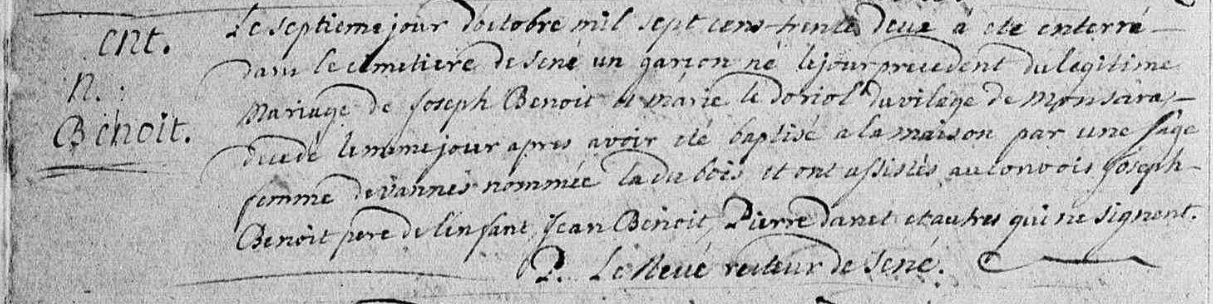 ent.
n.
Benoit.
Le septieme jour d'octobre mil sept cens trente deux a eté enterré
dans le cemetiere de Sené un garçon né le jour precedent du legitime
mariage de Joseph Benoit et marie le doriol du vilage de
decedé le meme jour apres avoir eté baptisé a la maison par une sage
femme de vannes nommée la du bois et ont assistés au convois Joseph
Benoit pere de l'enfant, Jean Benoit, Pierre danet et autres qui ne signent.
P. Le Nevé recteur de Sené.